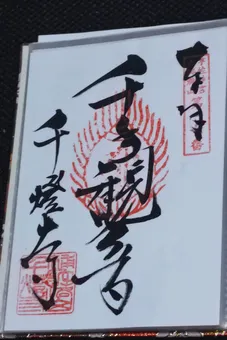 奉拝
千手観音
千燈寺